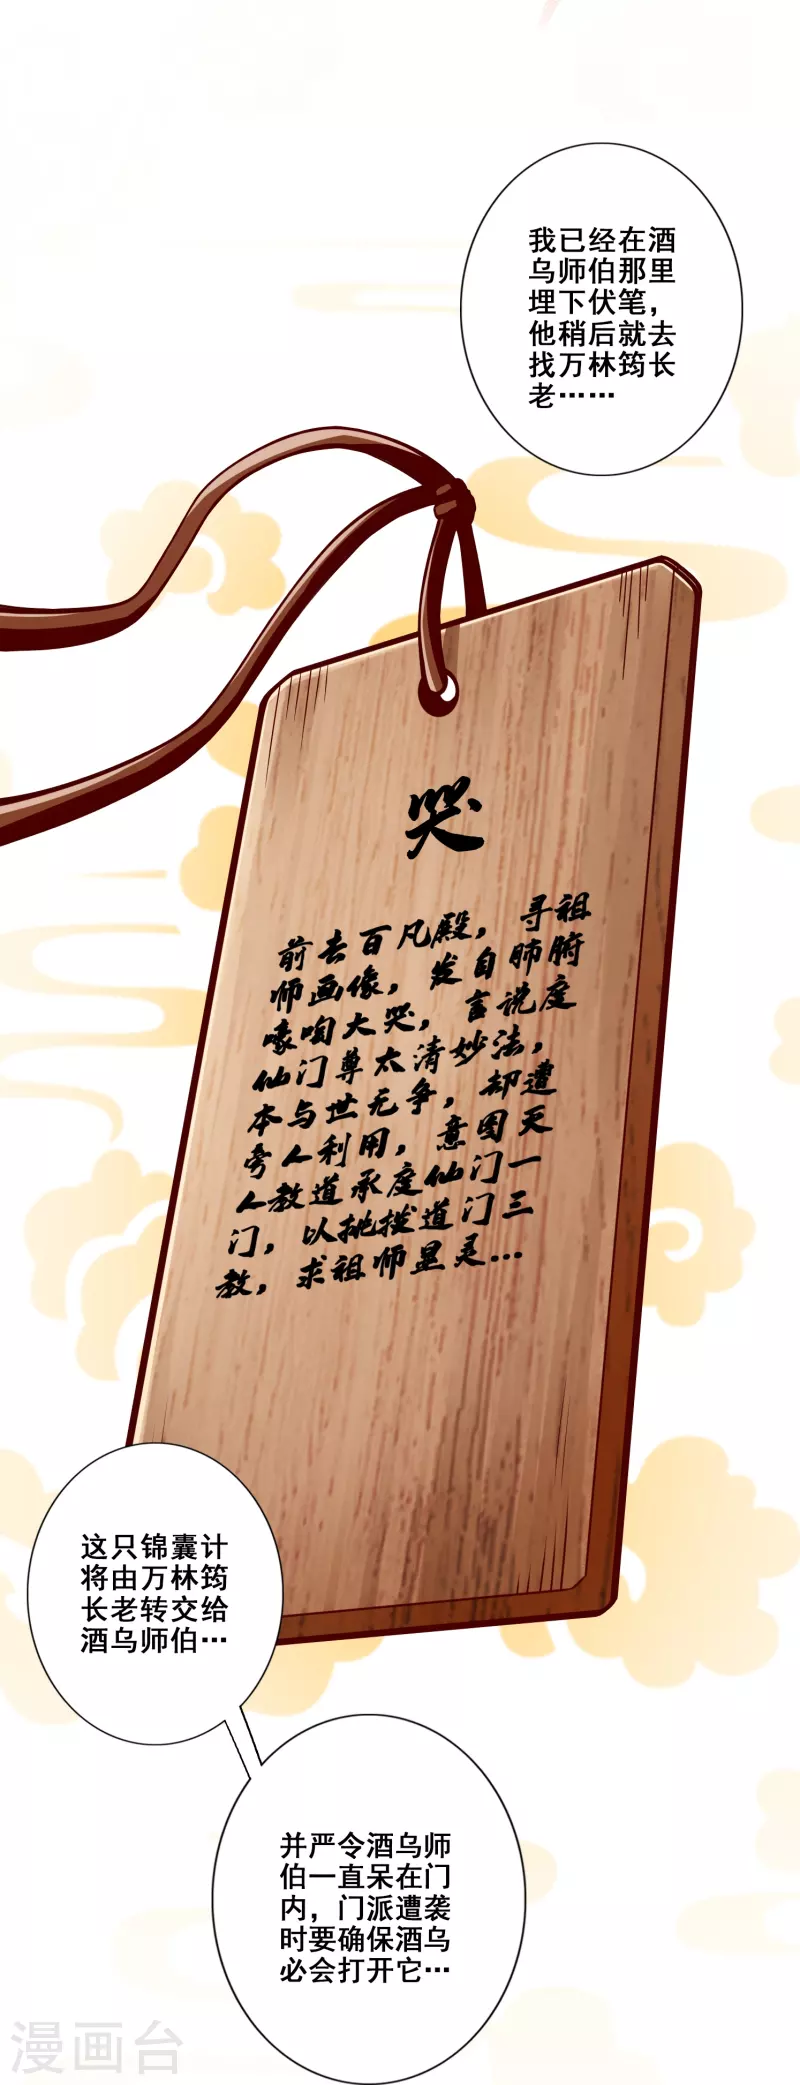 我已经在酒
乌师伯那里
埋下伏笔，
他稍后就去
找万林筠长
老……
哭
前去百凡殿，寻祖
师画像，发自肺腑
嚎啕大哭，言说度
仙门尊太清妙法，
本与世无争，却遭
旁人利用，意图灭
人教道承度仙门一
门，以挑拨道门三
教，求祖师显灵...
这只锦囊计
将由万林筠
长老转交给
酒乌师伯…
并严令酒乌师
伯一直呆在门
内，门派遭袭
时要确保酒乌
必会打开它…
漫画台